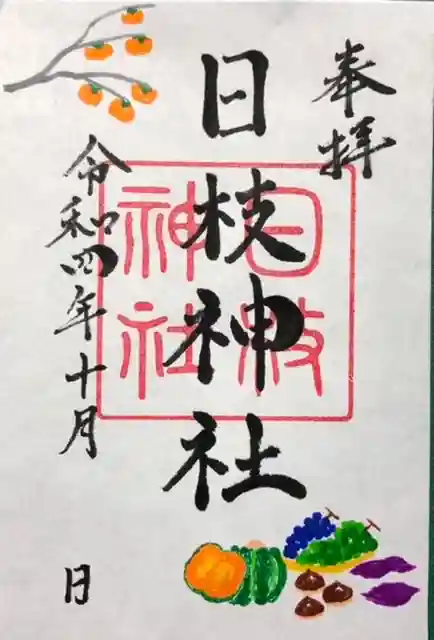 奉拝
日枝神社
日枝
神社
令和四年十月 日